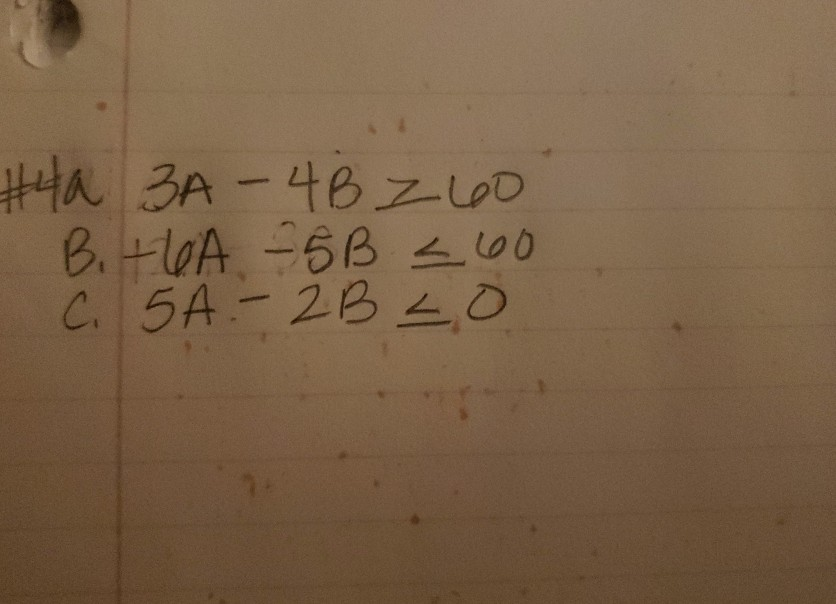 #4a 3A - 4B ≥ 60
B. +6A - 5B ≤ 60
C. 5A - 2B ≤ 0